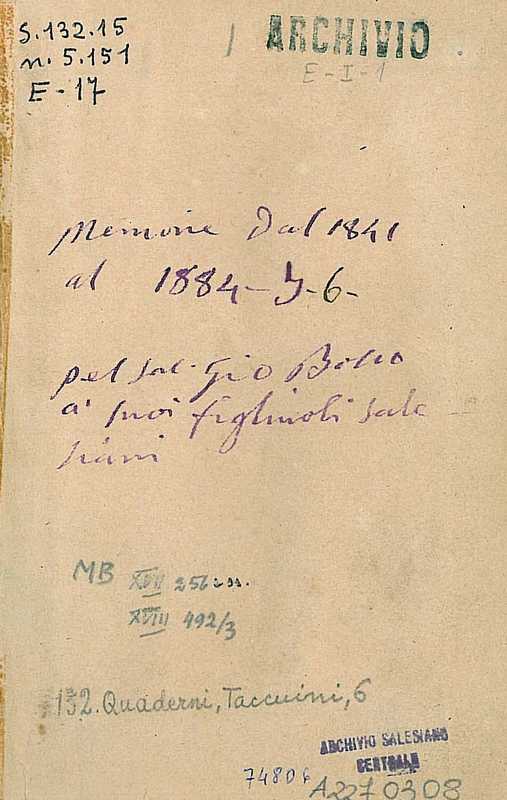 S.132.15
n. 5.151
E-17
ARCHIVIO
E-I-1
Memorie Dal 1841
al 1884-5-6-
pel Sac. Gio Bosco
a' suoi figliuoli Sale
siani
MB XVII 256 e ss.
XVIII 492/3
132. Quaderni, Taccuini, 6
ARCHIVIO SALESIANO
CENTRALE
74806
A2270308